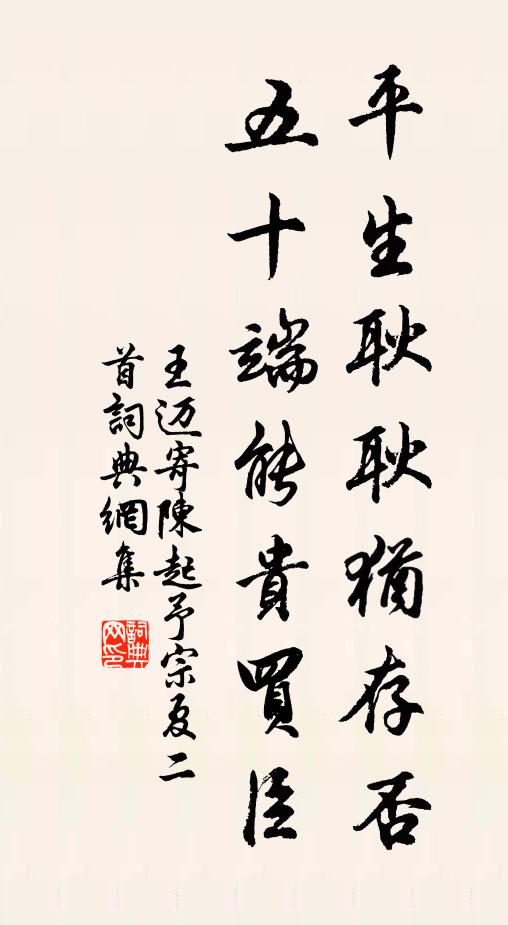 平生耿耿猶存否
五十端能貴買臣
王迈寄陳起予宗夏二
首詞典網集
詞典网印